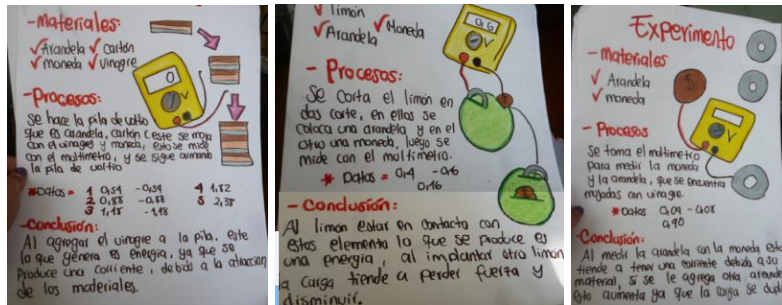 -materiales:
✓Arandela ✓cartón
✓moneda ✓vinagre
0
V
-Procesos:
se hace la pila de voltio
que es arandela, cartón (este se moja
con el vinagre y moneda, esto se mide
con el multimetro, y se sigue armando
la pila de voltio
*Datos = 1 0,54 -0,54 4 1,82
2 0,88 -0,88 5 2,38
3 1,18 -1,18
-Conclusión:
Al agregar el vinagre a la pila, este
lo que genera es energia, ya que se
Produce una corriente, debido a la atracción
de los materiales.
✓ limón
✓Arandela ✓Moneda
V
- Procesos:
Se corta el limón en
dos corte, en ellos se
coloca una arandela y en el
otro una moneda, luego se
mide con el multimetro.
* Datos = 0,4 -0,6
0,16
- Conclusión:
Al limón estar en contacto con
estos elemento lo que se produce es
una energía, al implantar otro limón
a carga tiende a perder fuerza y
disminuir.
Experimento
- materiales
✓ Arandela
✓ moneda
V
- Procesos
Se toma el multimetro
para medir la moneda
y la arandela, que se encuentra
mojadas con vinagre.
*Datos 0,09 -0,08
0,90
-Conclusión:
Al medir la arandela con la moneda esto
tiende a tener una corriente debido a su
material, si se le agrega otra
esto aumenta ya que la carga se